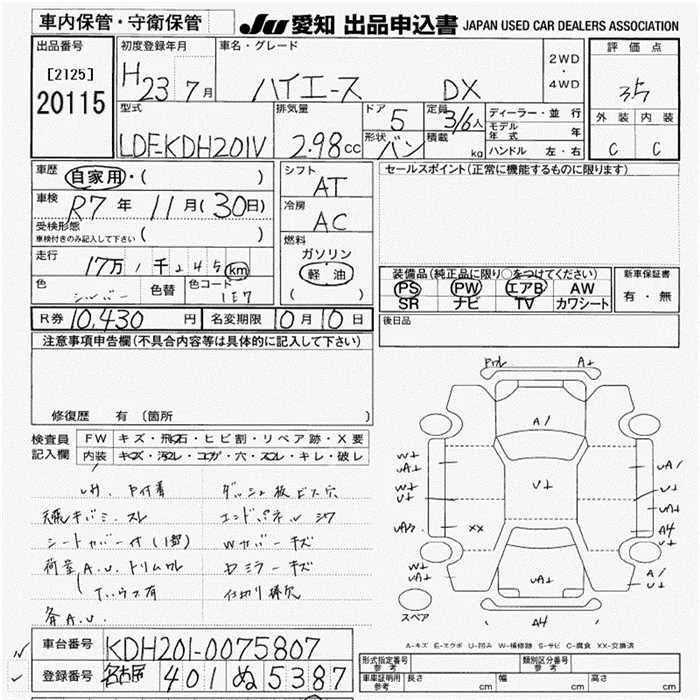 車内保管・守衛保管
JU 愛知 出品申込書 JAPAN USED CAR DEALERS ASSOCIATION
出品番号
[2125]
20115
初度登録年月
H23 7月
車名・グレード
ハイエース DX
2WD
・
4WD
評価点
3.5
外装 内装
C C
型式
LDF-KDH201V
排気量
2.98cc
ドア 5
形状 バン
定員 3/6人
積載 kg
ディーラー・並行
モデル年式 年
ハンドル 左・右
車歴
自家用・( )
車検
R7年 11月(30日)
受検形態
車検付きのみ記入して下さい ( )
走行
17万1千245km
色
シルバー
色替
色コード
1E7
シフト
AT
冷房
AC
燃料
ガソリン
軽油
( )
セールスポイント(正常に機能するものに限ります)
装備品(純正品に限り○をつけてください)
PS PW エアB AW
SR ナビ TV カワシート
新車保証書
有・無
R券 10,430円 名変期限 10月10日
後日品
注意事項申告欄(不具合内容等は具体的に記入して下さい)
修復歴 有 (箇所 )
検査員記入欄
FW キズ・飛石・ヒビ割・リペア跡・X要
内装 キズ・汚レ・コゲ・穴・スレ・キレ・破レ
ダッシュ板ビス穴
シートカバー付(1部)
Wカバーキズ
荷室A.U.トリムワレ
Fミラーキズ
A1
U1
UA1
XX
A4
スペア
A-キズ E-エクボ U-凹み W-補修跡 S-サビ C-腐食 XX-交換済
車台番号 KDH201-0075807
登録番号 名古屋 401 ぬ 5387
形式指定番号 参考
類別区分番号 参考
車庫証明用 参考 長さ cm 幅 cm 高さ cm